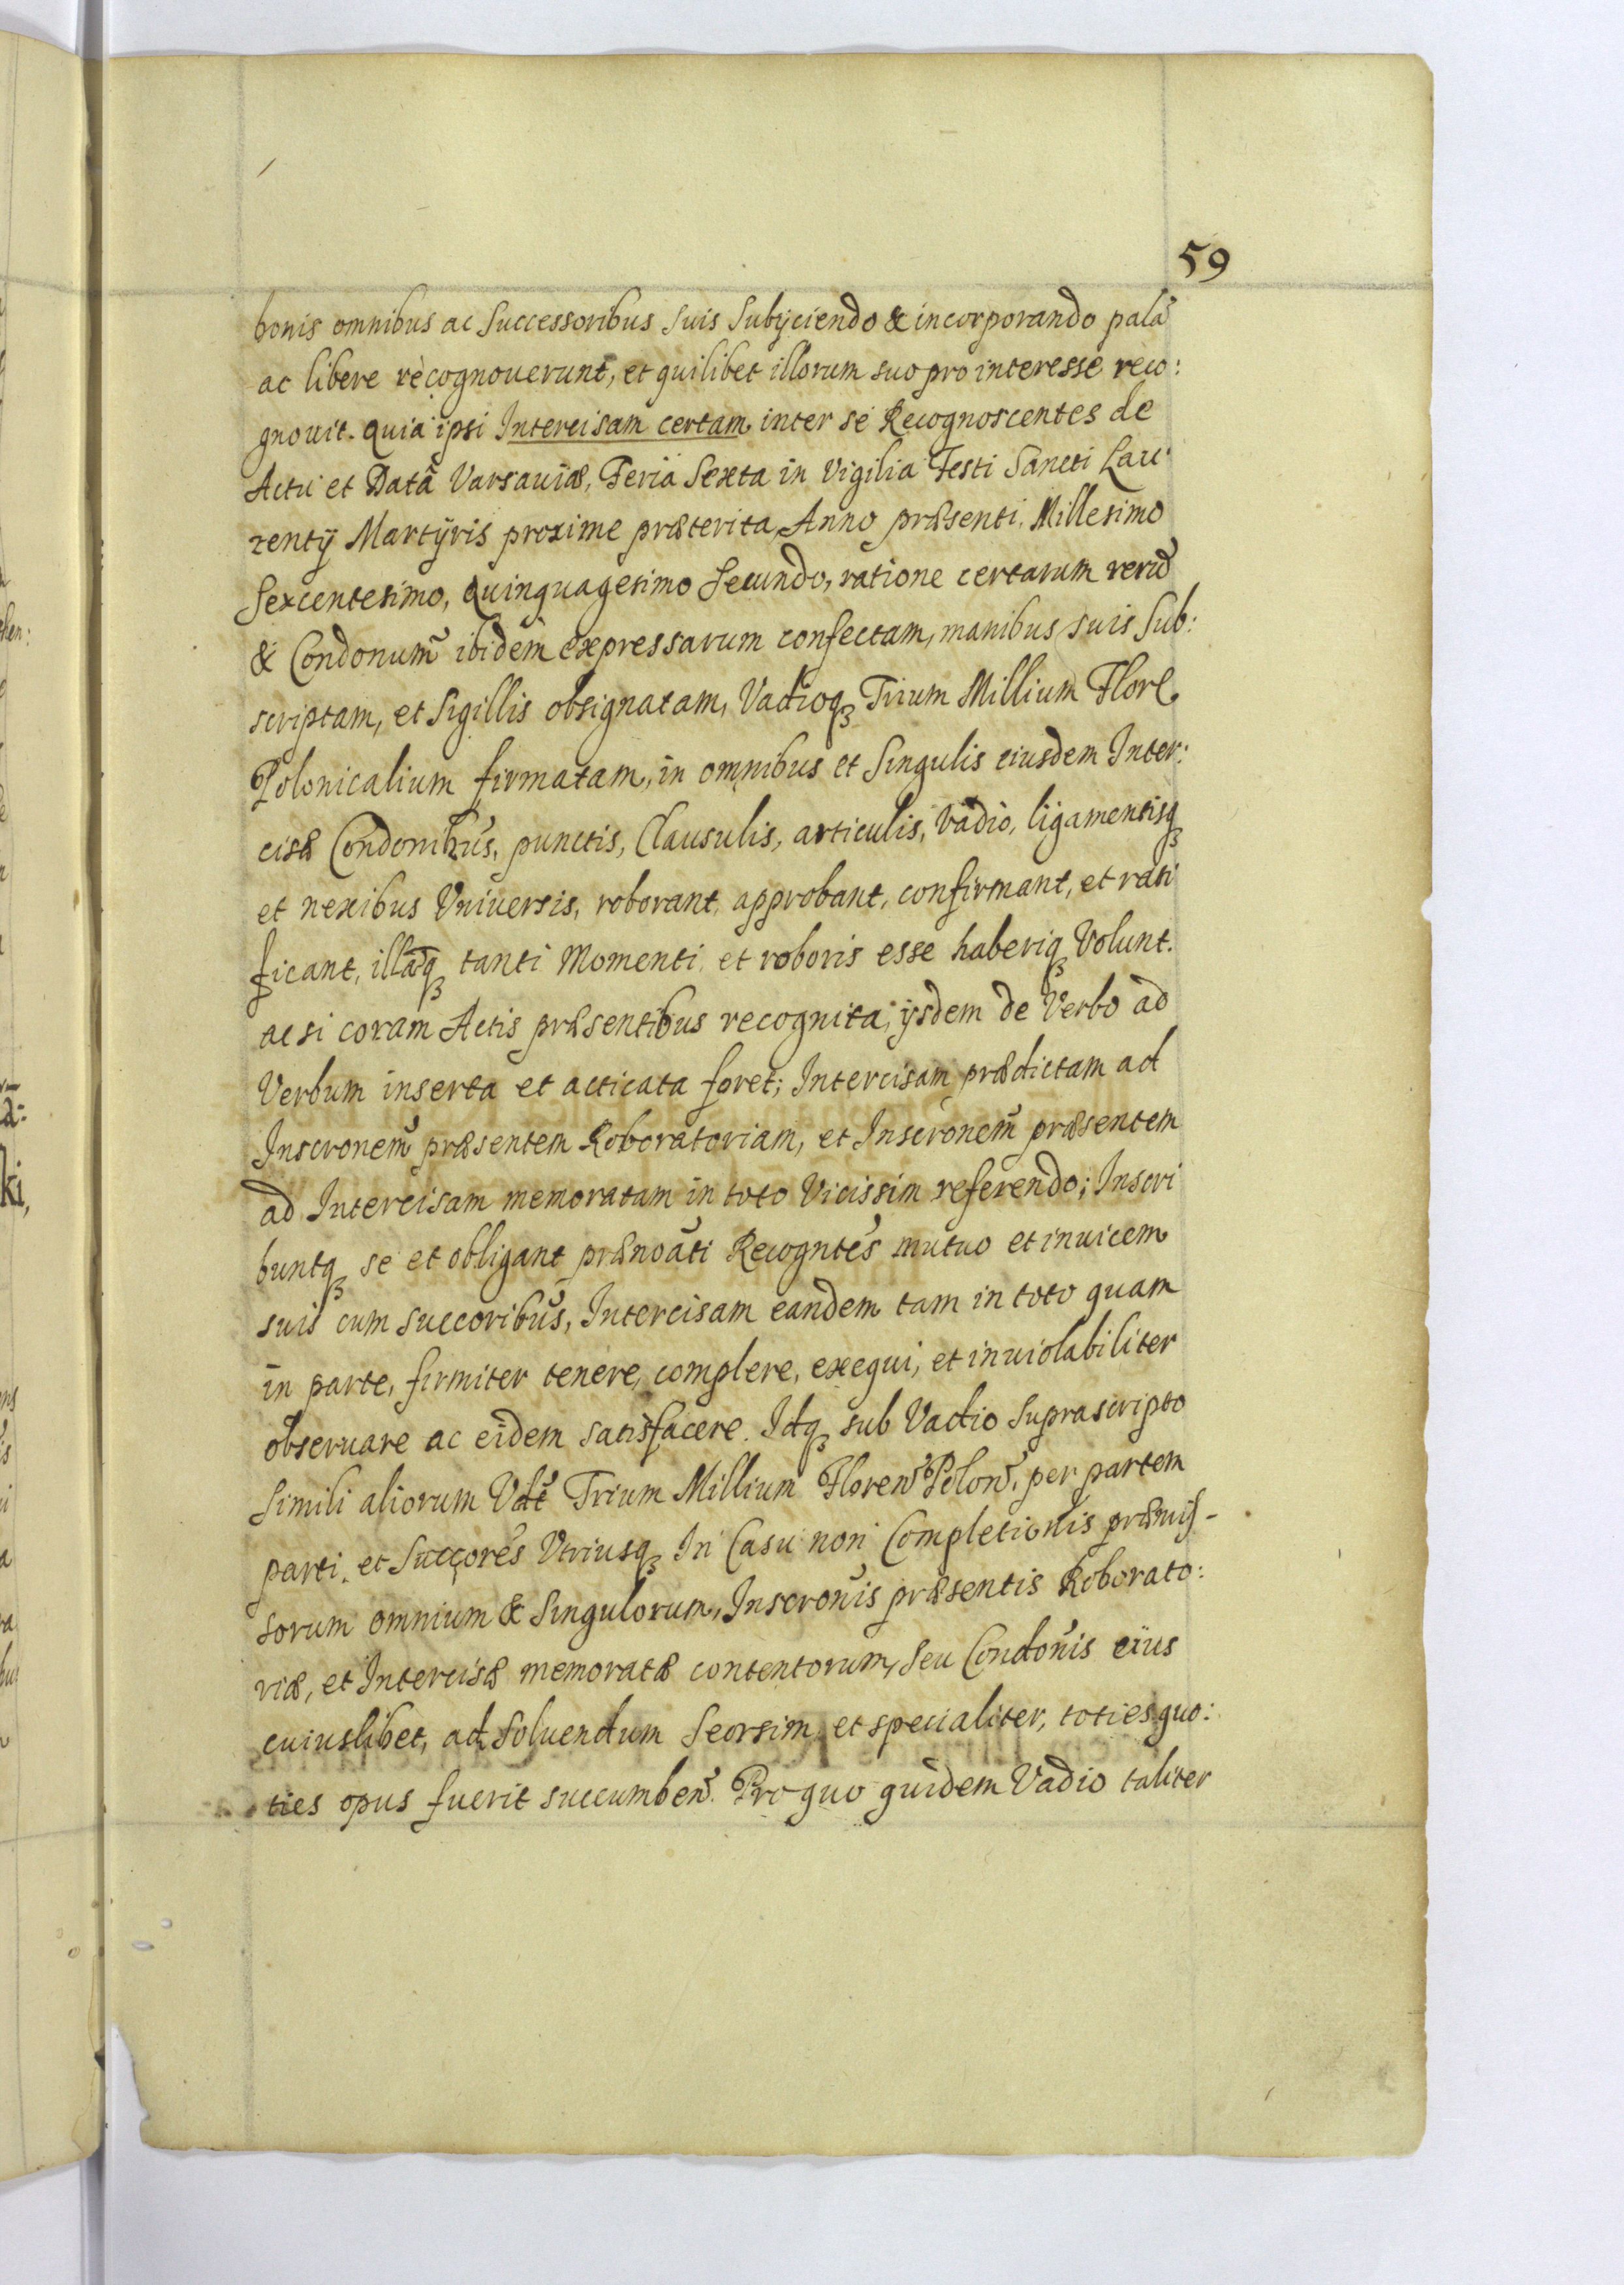 59
bonis omnibus ac Successoribus suis Subijciendo & incorporando palã
ac libere recognoverunt, et quilibet illorum suo pro interesse reco:
gnouit. Quia ipsi Intercisam certam inter se Recognoscentes de
Actu et Datâ Varsauiæ, Feria Sexta in Vigilia Festi Sancti Lau
rentij Martijris proxime præterita, Anno præsenti. Millesimo
Sexcentesimo, Quinquagesimo Secundo, ratione certarum rerũ
& Condonum̃ ibidem expressarum confectam, manibus suis Sub:
scriptam, et Sigillis obsignatam, Vadioqꝫ Trium Millium Flore
Polonicalium firmatam, in omnibus et Singulis eiusdem Inter:
cisæ Condonibus̃, punctis, Clausulis, articulis, Vadio, ligamentisqꝫ
et nexibus Vniuersis, roborant, approbant, confirmant, et rati
ficant, illãqꝫ tanti Momenti et roboris esse haberiqꝫ Volunt.
ac si coram Actis præsentibus recognita, ijsdem de Verbo ad
Verbum inserta et acticata foret; Intercisam prædictam ad
Inscronem̃ præsentem Roboratoriam, et Inscronem̃ præsentem
ad Intercisam memoratam in toto Vicissim referendo; Inscri
buntqꝫ se et obligant prænoãti Recogntẽs mutuo et inuicem
suis cum succoribus̃, Intercisam eandem tam in toto quam
in parte, firmiter tenere, complere, exequi, et inuiolabiliter
obseruare ac eidem satisfacere. Idqꝫ sub Vadio Suprascripto
Simili aliorum Vdẽ Trium Millium Floreñ Poloñ. per partem
parti. et Succorẽs Vtriusqꝫ In Casu non Completionis præmis-
sorum omnium & Singulorum, Inscronĩs præsentis Roborato:
riæ, et Intercisæ memoratæ contentorum, seu Condonĩs eius
cuiuslibet, ad Soluendum Seorsim et specialiter, toties quo:
ties opus fuerit succumbeñ. Pro quo quidem Vadio taliter